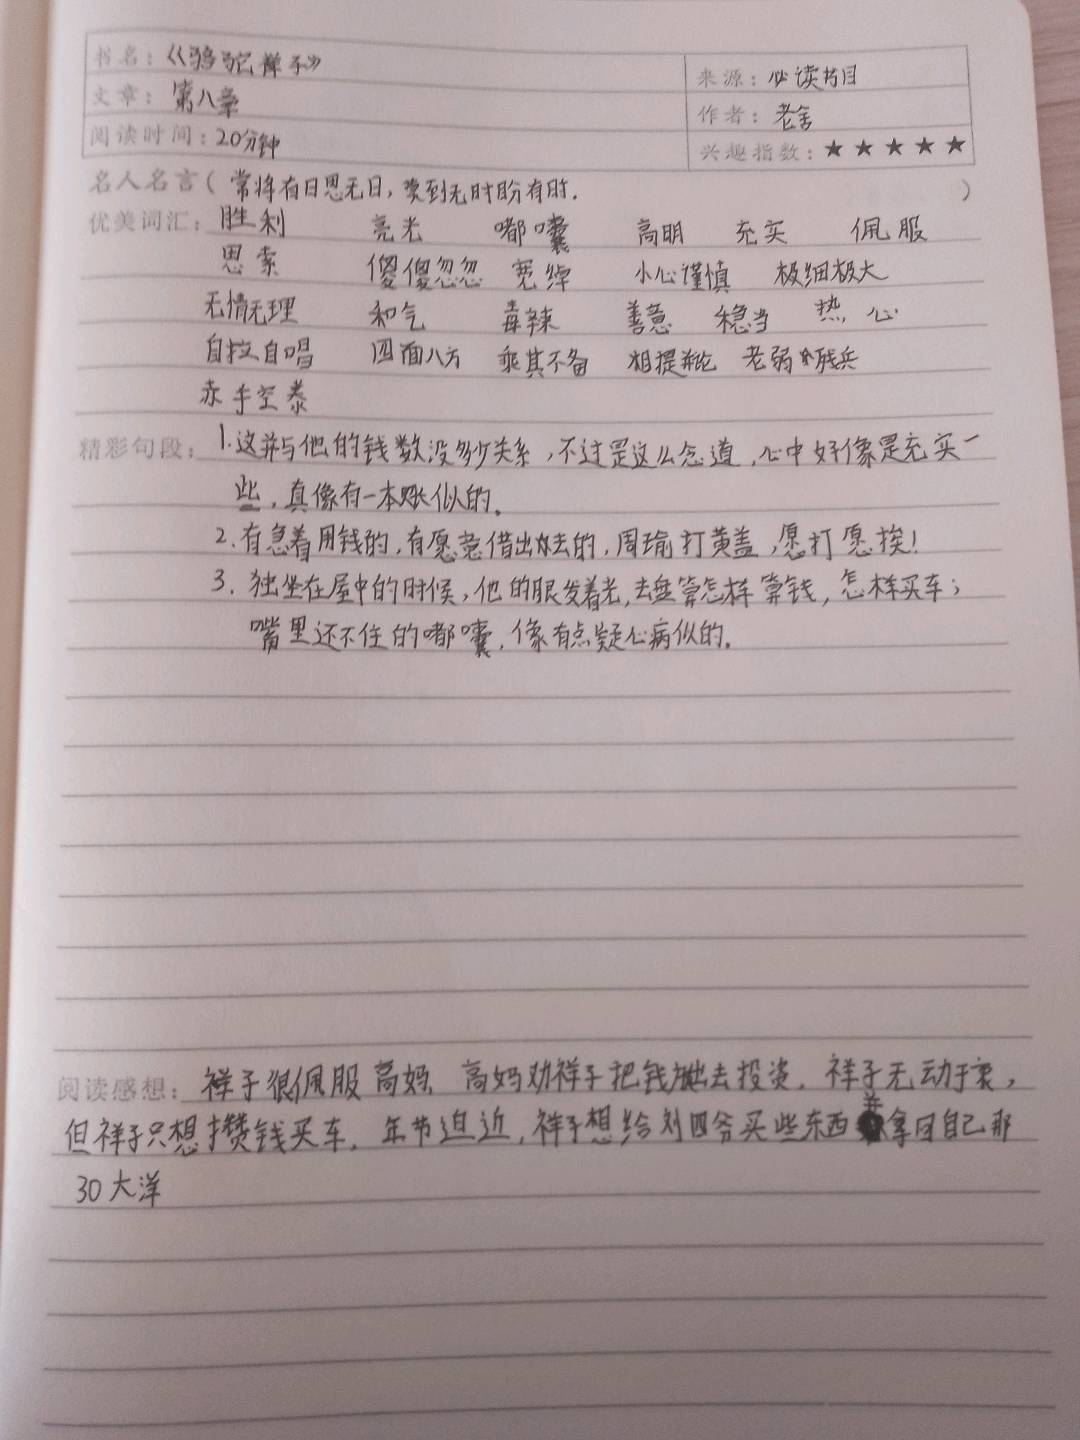 书名：《骆驼祥子》
来源：必读书目
文章：第八章
作者：老舍
阅读时间：20分钟
兴趣指数：★★★★★
名人名言（常将有日思无日，莫到无时盼有时.）
优美词汇：胜利 亮光 嘟囔 高明 充实 佩服
思索 傻傻忽忽 宽绰 小心谨慎 极细极大
无情无理 和气 毒辣 善意 稳当 热心
自拉自唱 四面八方 乘其不备 相提并论 老弱残兵
赤手空拳
精彩句段：1.这并与他的钱数没多少关系，不过是这么念道，心中好像是充实一
些，真像有一本账似的。
2.有急着用钱的，有愿意借出去的，周瑜打黄盖，愿打愿挨！
3.独坐在屋中的时候，他的眼发着光，去盘算怎样算钱，怎样买车；
嘴里还不住的嘟囔，像有点疑心病似的。
阅读感想：祥子很佩服高妈，高妈劝祥子把钱拋出去投资，祥子无动于衷，
但祥子只想攒钱买车，年节迫近，祥子想给刘四爷买些东西并拿回自己那
30大洋